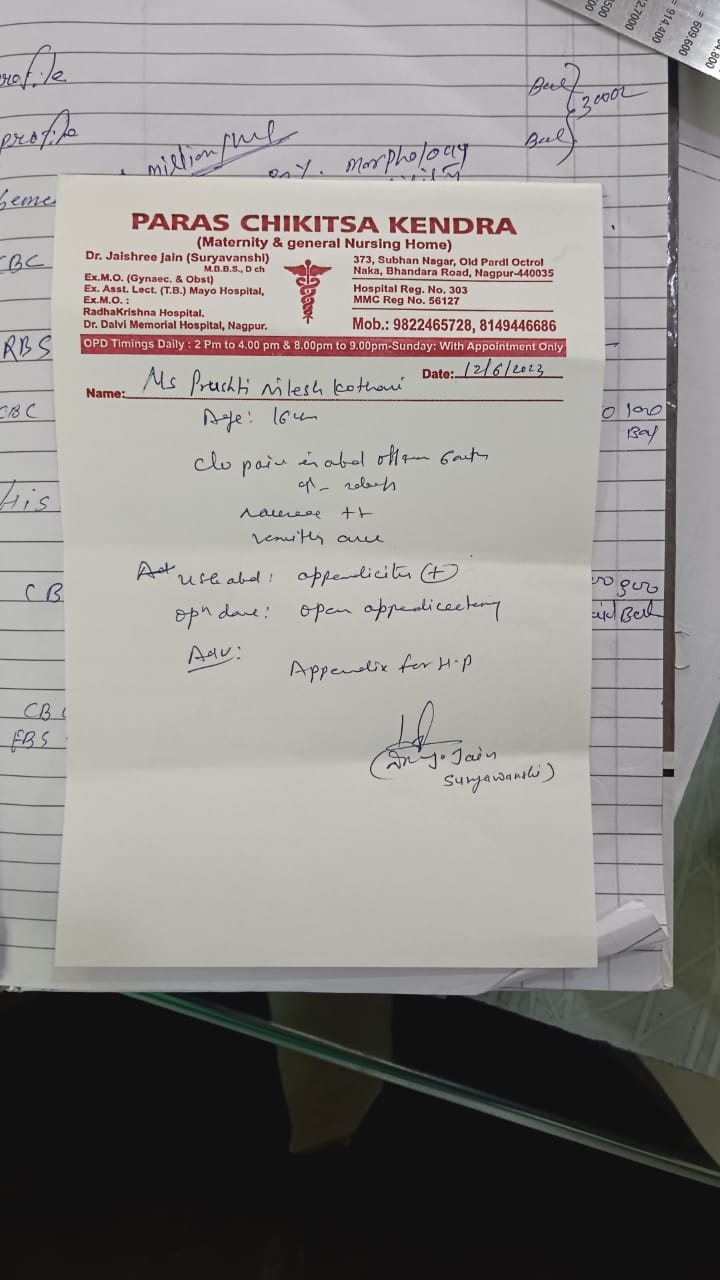 2.7000
= 914.400
= 609.600
profile
Bal
3000
profile
Bal
million/ml
morphology
CBC
RBS
CBC
100
Bal
His
CB
Bal
CB
FBS
PARAS CHIKITSA KENDRA
(Maternity & general Nursing Home)
Dr. Jaishree Jain (Suryavanshi)
M.B.B.S., D ch
Ex.M.O. (Gynaec. & Obst)
Ex. Asst. Lect. (T.B.) Mayo Hospital,
Ex.M.O. :
RadhaKrishna Hospital.
Dr. Dalvi Memorial Hospital, Nagpur.
373, Subhan Nagar, Old Pardl Octrol
Naka, Bhandara Road, Nagpur-440035
Hospital Reg. No. 303
MMC Reg No. 56127
Mob.: 9822465728, 8149446686
OPD Timings Daily : 2 Pm to 4.00 pm & 8.00pm to 9.00pm-Sunday: With Appointment Only
Date: 12/6/2023
Name: Ms Prushti Nilesh Kothari
Age:
c/o pain in abd
nausea ++
USG abd: appendicitis (+)
opn done: open appendicectomy
Adv:
Appendix for H.P
(Dr. J. Jain
Suryawanshi)